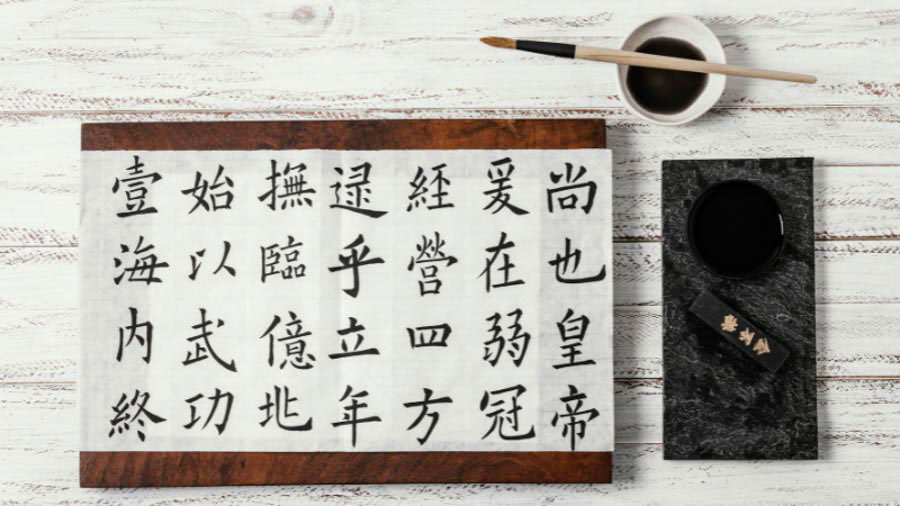 尚也皇帝
爰在弱冠
經營四方
逮乎立年
撫臨億兆
始以武功
壹海内終
金不換